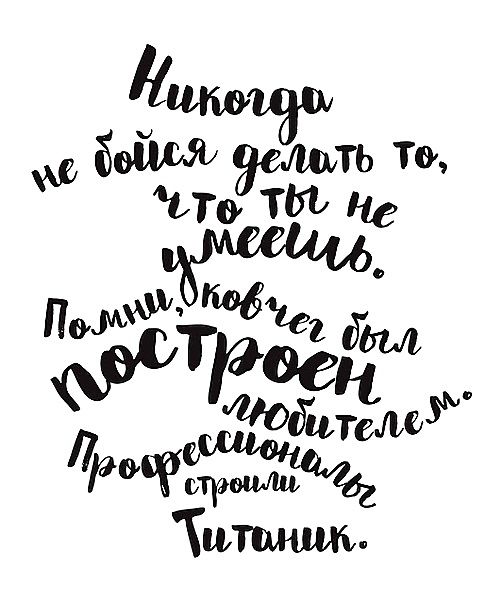 Никогда
не бойся делать то,
что ты не
умеешь.
Помни, ковчег был
построен
любителем.
Профессионалы
строили
Титаник.